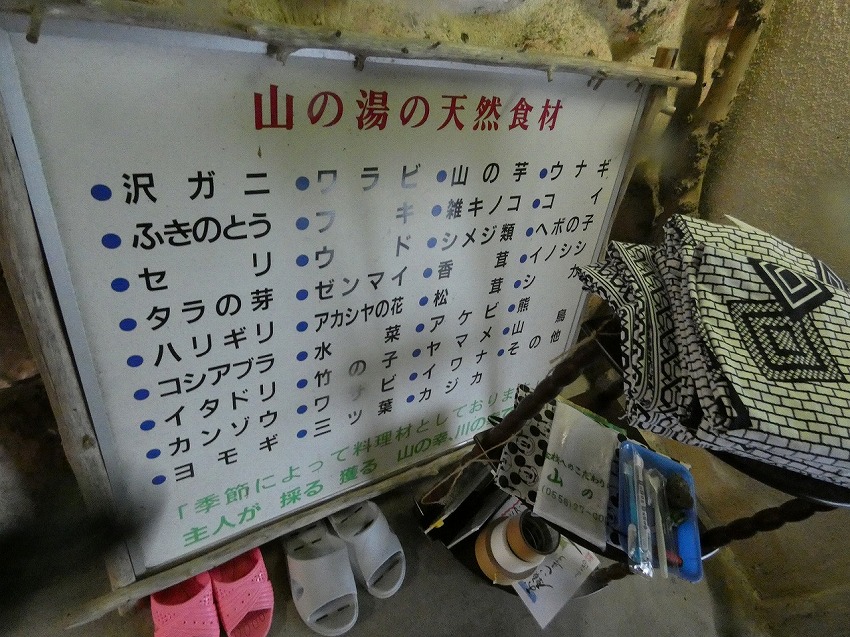 山の湯の天然食材
●沢ガニ
●ふきのとう
●セリ
●タラの芽
●ハリギリ
●コシアブラ
●イタドリ
●カンゾウ
●ヨモギ
●ワラビ
●フキ
●ウド
●ゼンマイ
●アカシヤの花
●水菜
●竹の子
●ワサビ
●三ツ葉
●山の芋
●雑キノコ
●シメジ類
●香茸
●松茸
●アケビ
●ヤマメ
●イワナ
●カジカ
●ウナギ
●コイ
●ヘボの子
●イノシシ
●シカ
●熊
●山鳥
●その他
「季節によって料理材としておりま
主人が 採る 獲る 山の幸、川の
へのこだわり
山の